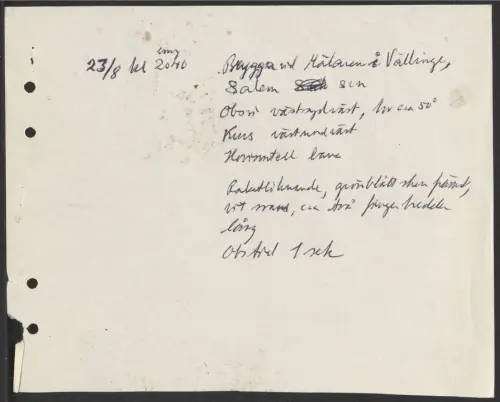 23/8 kl 2040 Brygga vid Mälaren i Vällinge,
Salem sn
Obsri västsydväst, hv ca 50°
Kurs västnordväst
Horisontell bana
Raketliknande, grönblått sken främst,
vit svans, ca två fingerbredder
lång
Obstid 1 sek